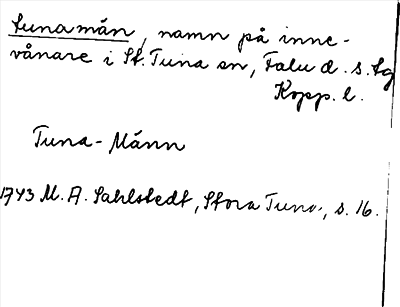 tunamän, namn på inne-
vånare i St. Tuna sn, Falu d. s. lg
Kopp. l.
Tuna-Männ
1743 M. A. Sahlstedt, Stora Tuna, s. 16.